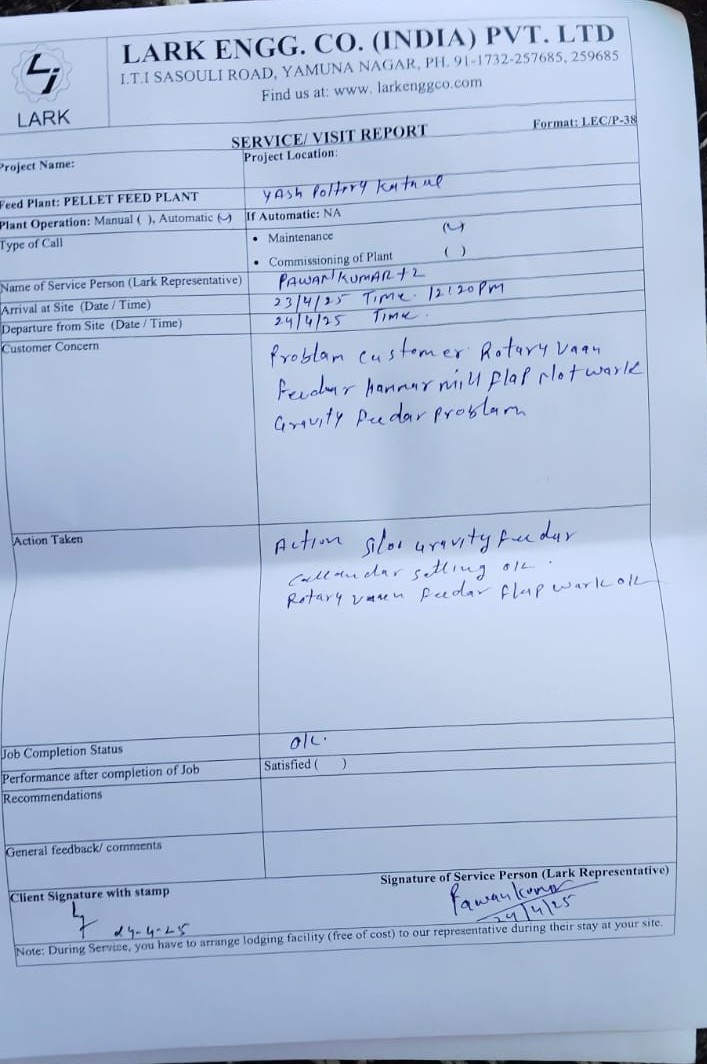 LARK ENGG. CO. (INDIA) PVT. LTD
I.T.I SASOULI ROAD, YAMUNA NAGAR, PH. 91-1732-257685, 259685
Find us at: www. larkenggco.com
LARK
SERVICE/ VISIT REPORT
Format: LEC/P-38
Project Name:
Project Location:
Feed Plant: PELLET FEED PLANT
YAsh Poltory
Plant Operation: Manual ( ), Automatic (✓)
If Automatic: NA
Type of Call
• Maintenance (✓)
• Commissioning of Plant ( )
Name of Service Person (Lark Representative)
PAWAN KUMAR +2
Arrival at Site (Date / Time)
23/4/25 Time. 12:20 PM
Departure from Site (Date / Time)
24/4/25 Time.
Customer Concern
Problam customer Rotary Vaan
Feedar hammar mill flap Not wark
Gravity feedar problam
Action Taken
Action Silos Gravity feedar
setting o/k.
Rotary vaaen feedar flap wark o/k
Job Completion Status
o/k.
Performance after completion of Job
Satisfied ( )
Recommendations
General feedback/ comments
Signature of Service Person (Lark Representative)
Client Signature with stamp
Pawan Kumar
24/4/25
24-4-25
Note: During Service, you have to arrange lodging facility (free of cost) to our representative during their stay at your site.